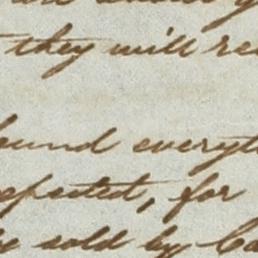 they will re
ound everyt
epected, for
be sold by Ca